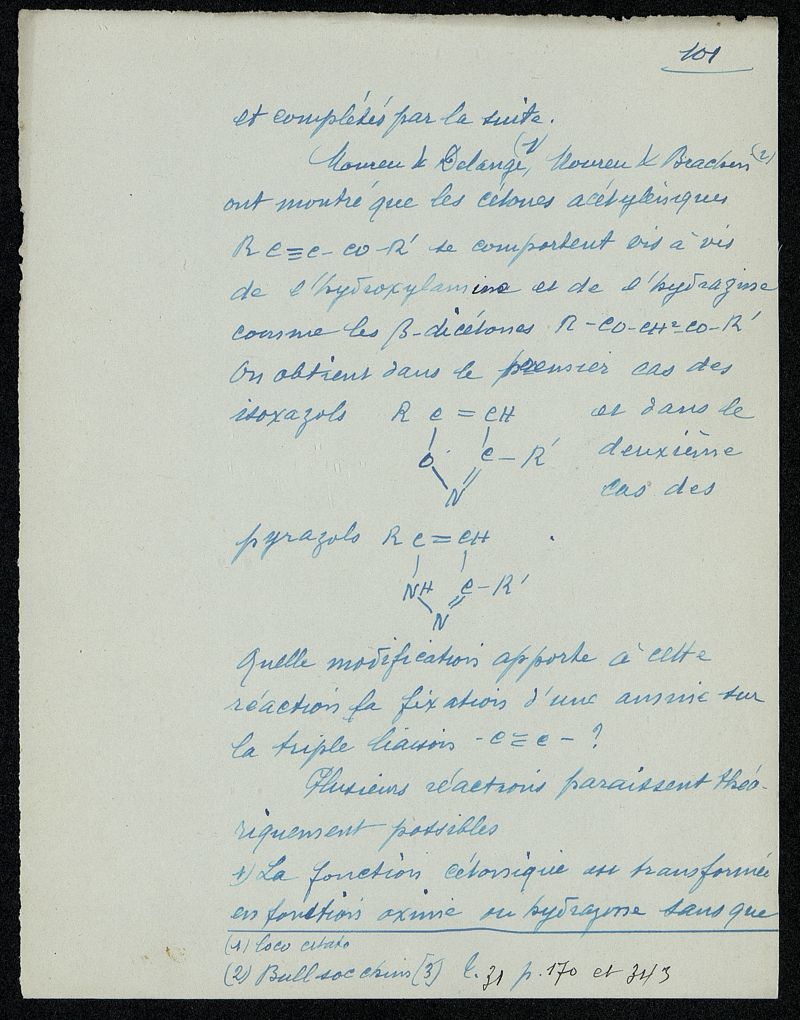 101
et complétés par la suite.
Moureu & Delange(1), Moureu & Brachin(2)
ont montré que les cétones acétyléniques
R C≡C-CO-R' se comportent vis à vis
de l'hydroxylamine et de l'hydrazine
comme les β-dicétones R-CO-CH²-CO-R'
On obtient dans le premier cas des
isoxazols R C = CH et dans le
O C-R' deuxième
N cas des
pyrazols R C = CH .
NH C-R'
N
Quelle modification apporte à cette
réaction la fixation d'une amine sur
la triple liaison -C≡C- ?
Plusieurs réactions paraissent théo-
riquement possibles
1) La fonction cétonique est transformée
en fonction oxime ou hydrazone sans que
(1) loco citato
(2) Bull soc chim [3] t. 31 p. 170 et 343